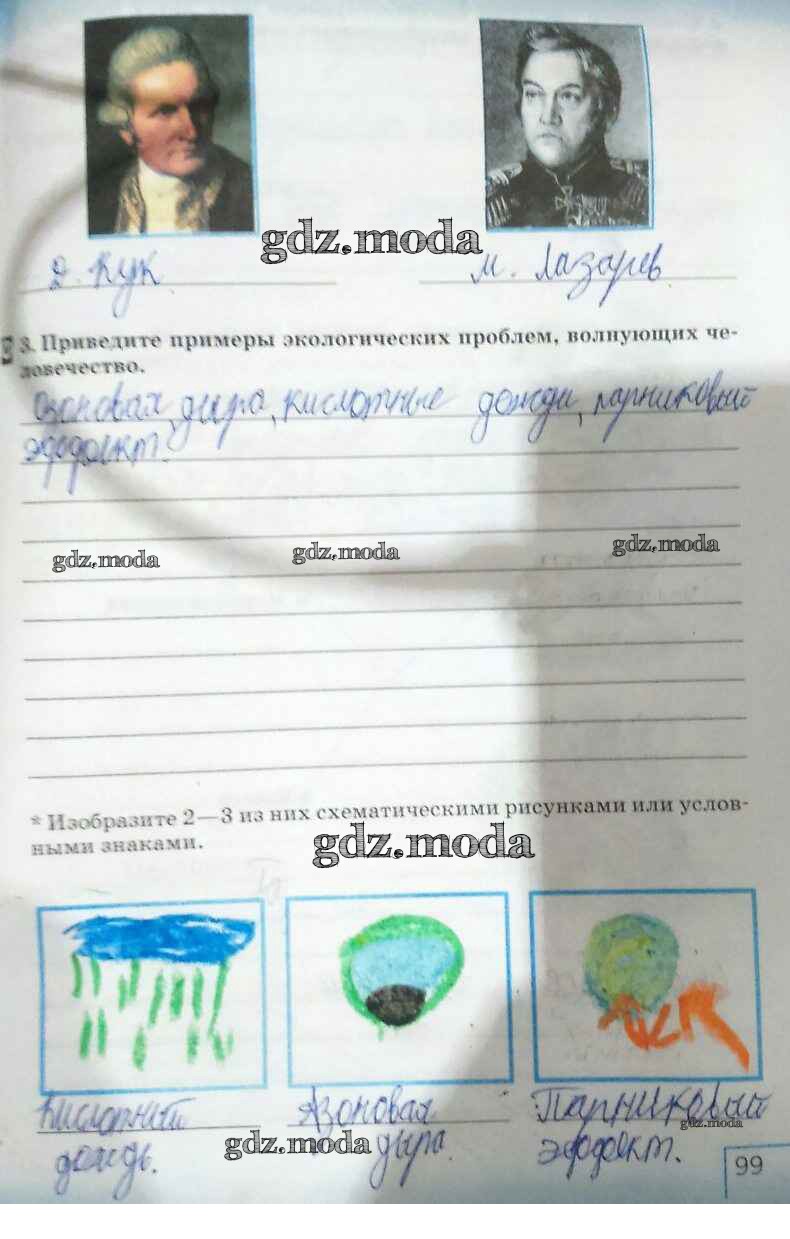 gdz.moda
Д. Кук
М. Лазарев
3. Приведите примеры экологических проблем, волнующих че-
ловечество.
Озоновая дыра, кислотные дожди, парниковый
эффект.
gdz.moda
gdz.moda
gdz.moda
* Изобразите 2—3 из них схематическими рисунками или услов-
ными знаками.
gdz.moda
Кислотный
дождь.
Азоновая
дыра.
Парниковый
эффект.
gdz.moda
gdz.moda
99